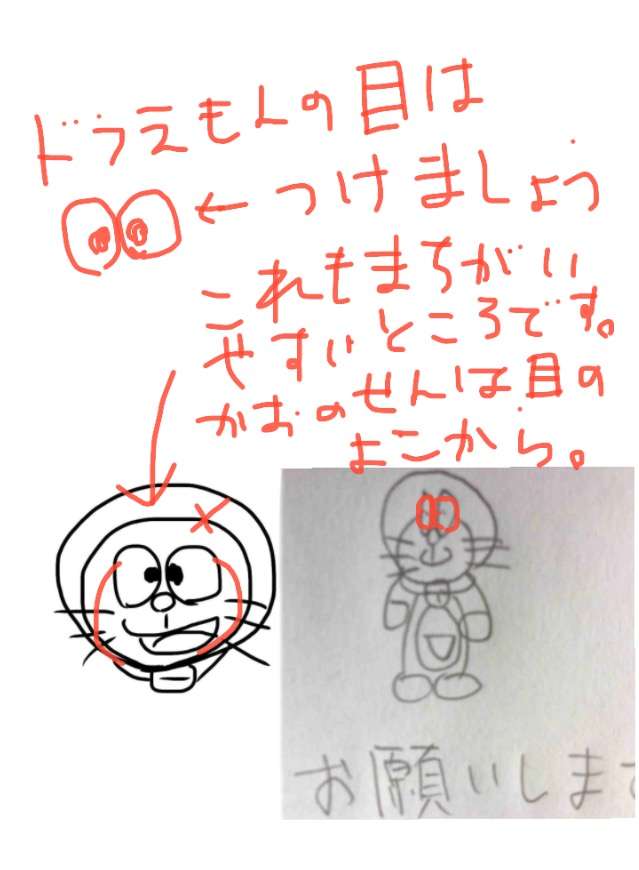 ドラえもんの目は
←つけましょう
これもまちがい
やすいところです。
かおのせんは目の
よこから。
お願いします